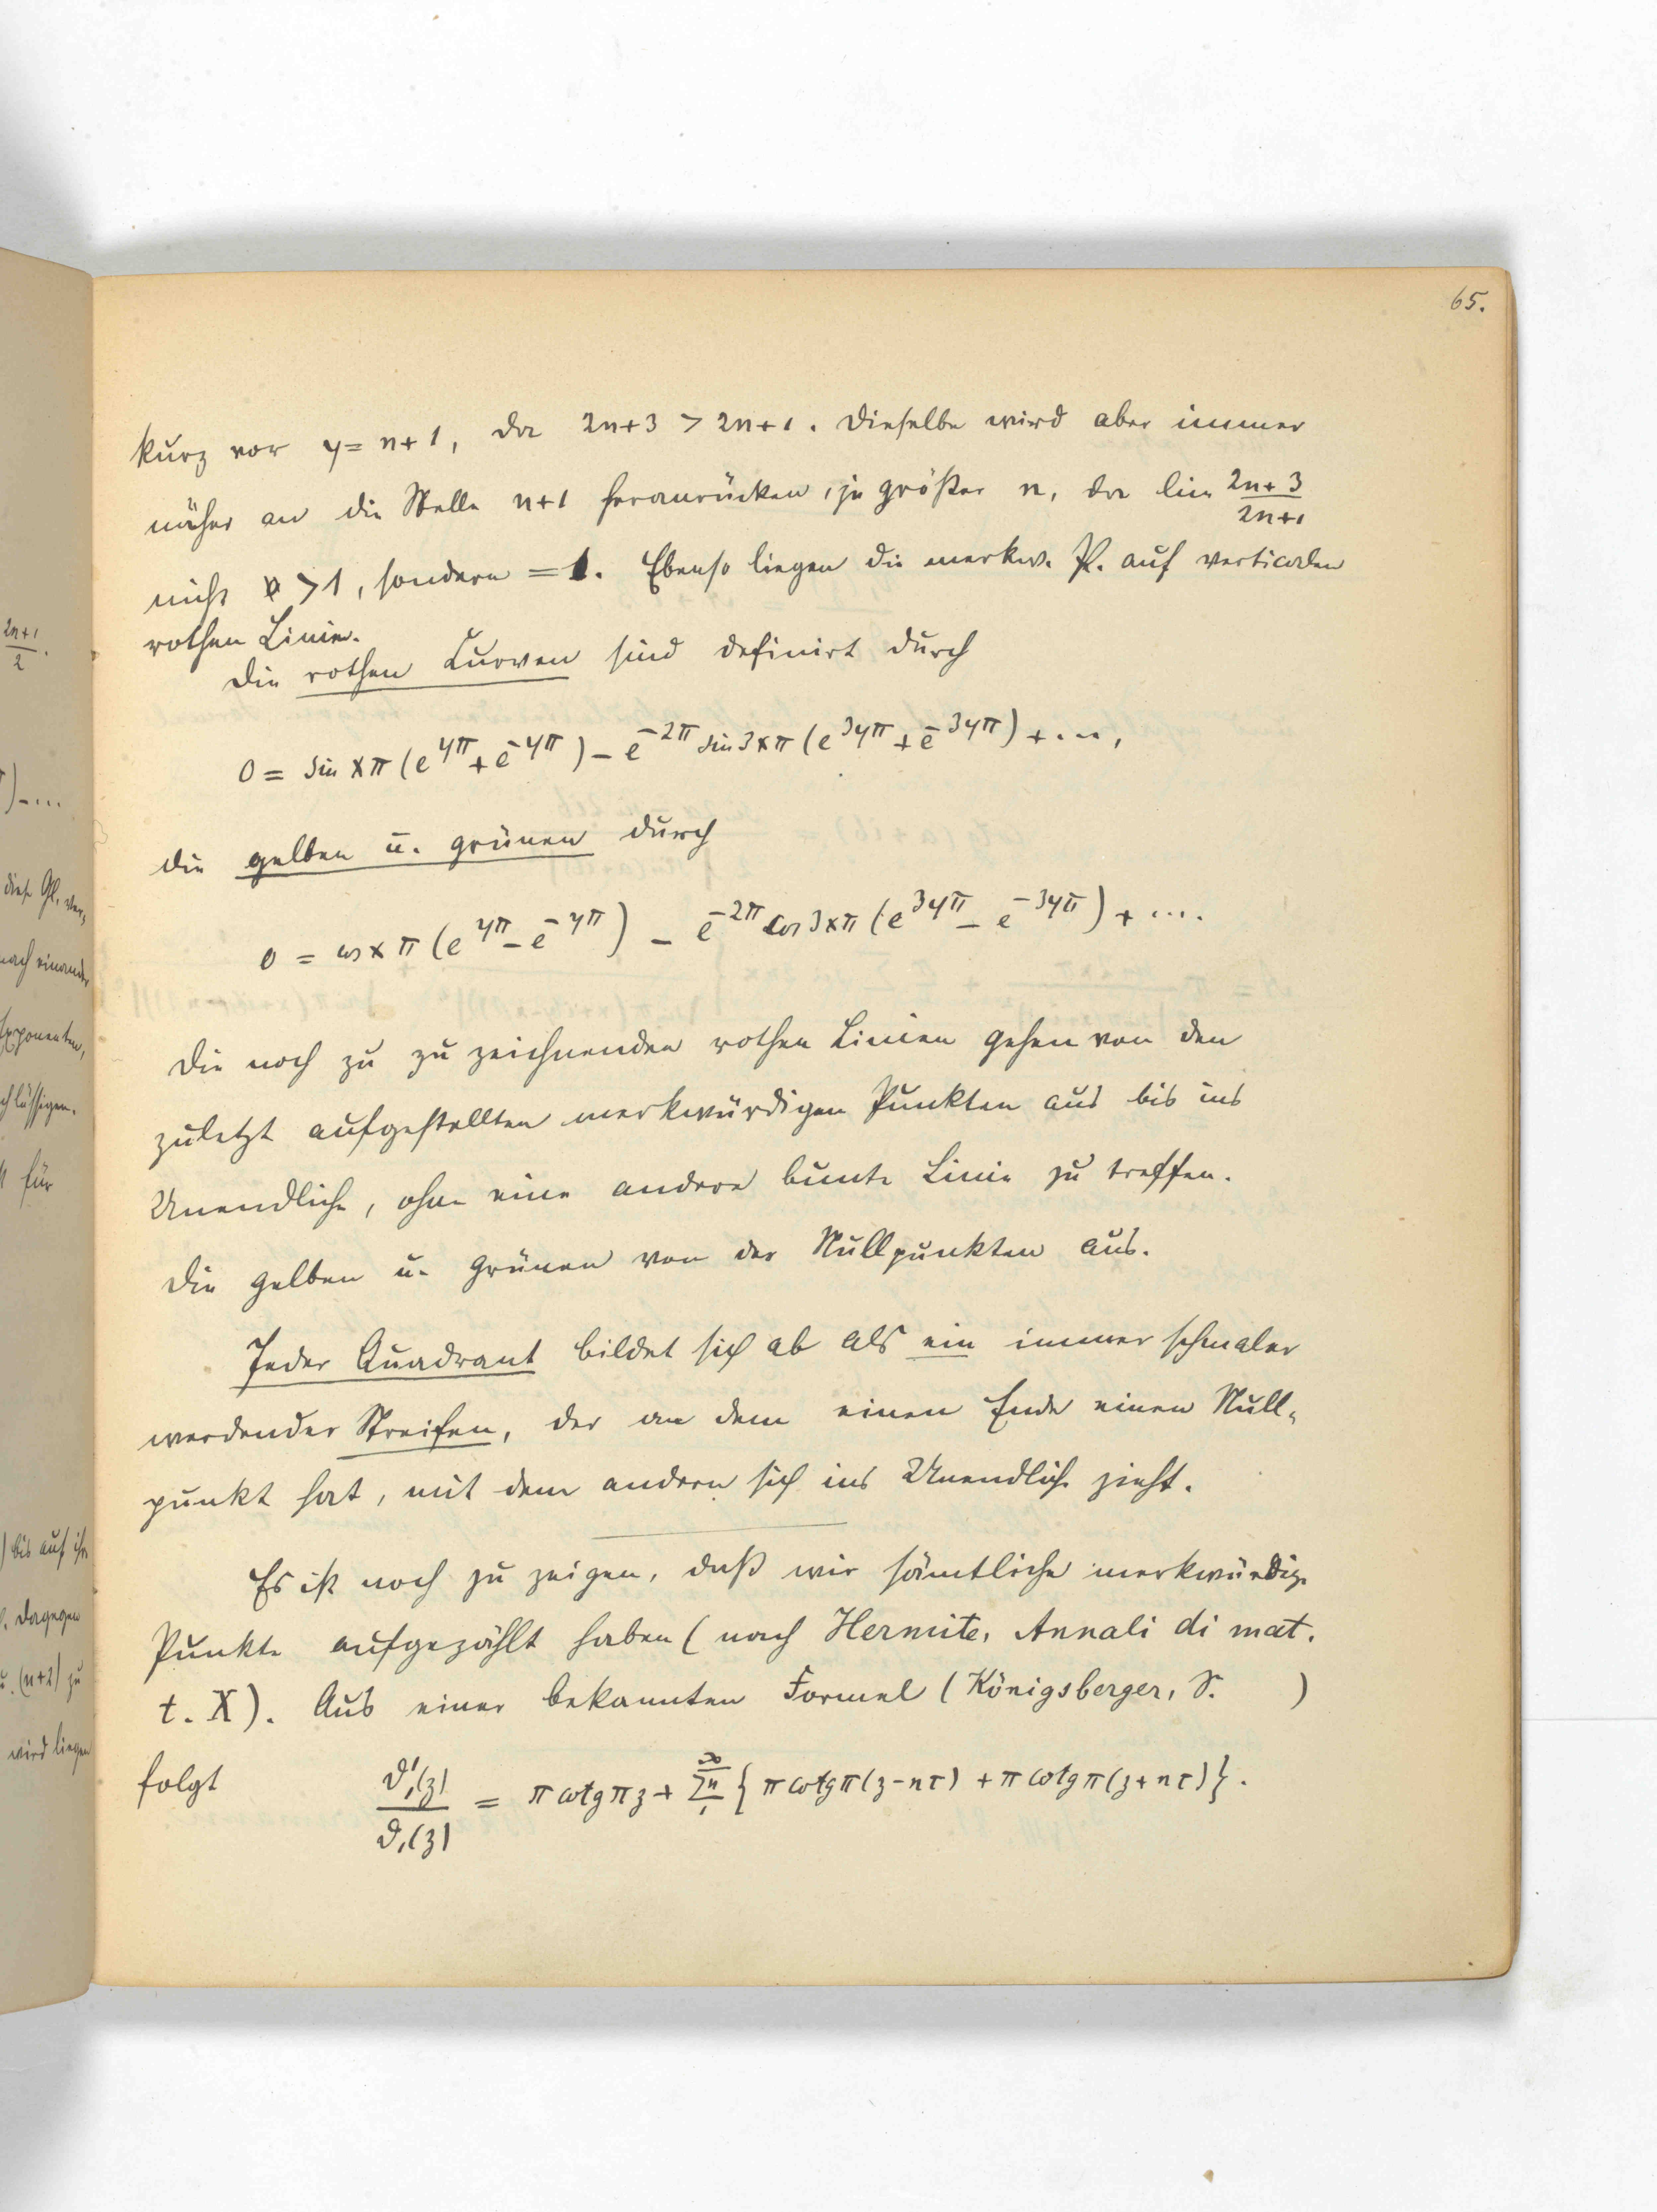 65.
kurz vor y = n+1, da 2n+3 > 2n+1. Dieselbe wird aber immer
näher an die Stelle n+1 heranrücken, je größer n, da lim \frac{2n+3}{2n+1}
nicht > 1, sondern = 1. Ebenso liegen die merkw. P. auf verticalen
rothen Linien.
Die rothen Curven sind definirt durch
0 = sin xπ (e^{yπ} + e^{-yπ}) - e^{-2π} sin 3xπ (e^{3yπ} + e^{-3yπ}) + ...,
die gelben u. grünen durch
0 = cos xπ (e^{yπ} - e^{-yπ}) - e^{-2π} cos 3xπ (e^{3yπ} - e^{-3yπ}) + ....
Die noch zu zu zeichnenden rothen Linien gehen von den
zuletzt aufgestellten merkwürdigen Punkten aus bis ins
Unendliche, ohne eine andere bunte Linie zu treffen.
Die gelben u. grünen von der Nullpunkten aus.
Jeder Quadrant bildet sich ab als ein immer schmaler
werdender Streifen, der an dem einen Ende einen Null-
punkt hat, mit dem andern sich ins Unendliche zieht.
Es ist noch zu zeigen, daß wir sämtliche merkwürdige
Punkte aufgezählt haben (nach Hermite, Annali di mat.
t. X). Aus einer bekannten Formel (Königsberger, S. )
folgt \frac{ϑ'_1(z)}{ϑ_1(z)} = π cotg πz + \sum_1^∞ n { π cotg π(z-nτ) + π cotg π(z+nτ) }.
2n+1
2 .
)-...
diese Gl. ver-
nach einander
Exponenten,
für
bis auf ihr
dagegen
u. (n+2) zu
wird liegen